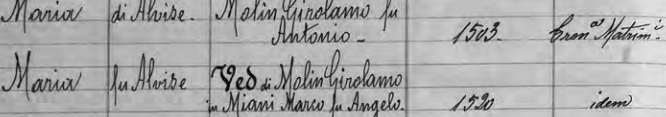 Maria di Alvise. Molin Girolamo fu
Antonio - 1503. Cron.ª Matrim.i
Maria fu Alvise Ved di Molin Girolamo
in Miani Marco fu Angelo. 1520 idem